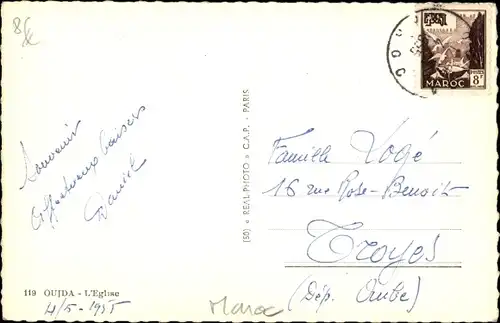 8€
Souvenir
Affectueux baisers
Daniel
119 OUJDA - L'Eglise
4/5 - 1955
Maroc
(50) « REAL PHOTO » C.A.P. - PARIS
MAROC
POSTES
8F
OUJ
Famille Logé
16 rue Rose-Benoit
Troyes
(Dép. Aube)